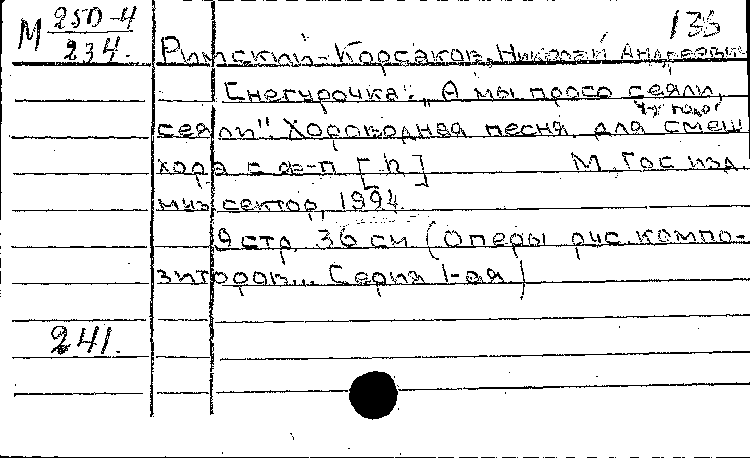 М 250-4
234.
135
Римский-Корсаков, Николай Андреевич
Снегурочка: „А мы просо сеяли,
сеяли" Хороводная песня для смеш
хора с ф-п [П] М, Гос изд.
муз сектор, 1924.
9 стр. 36 см (Оперы рус. компо-
зиторов... Серия 1-ая)
241.